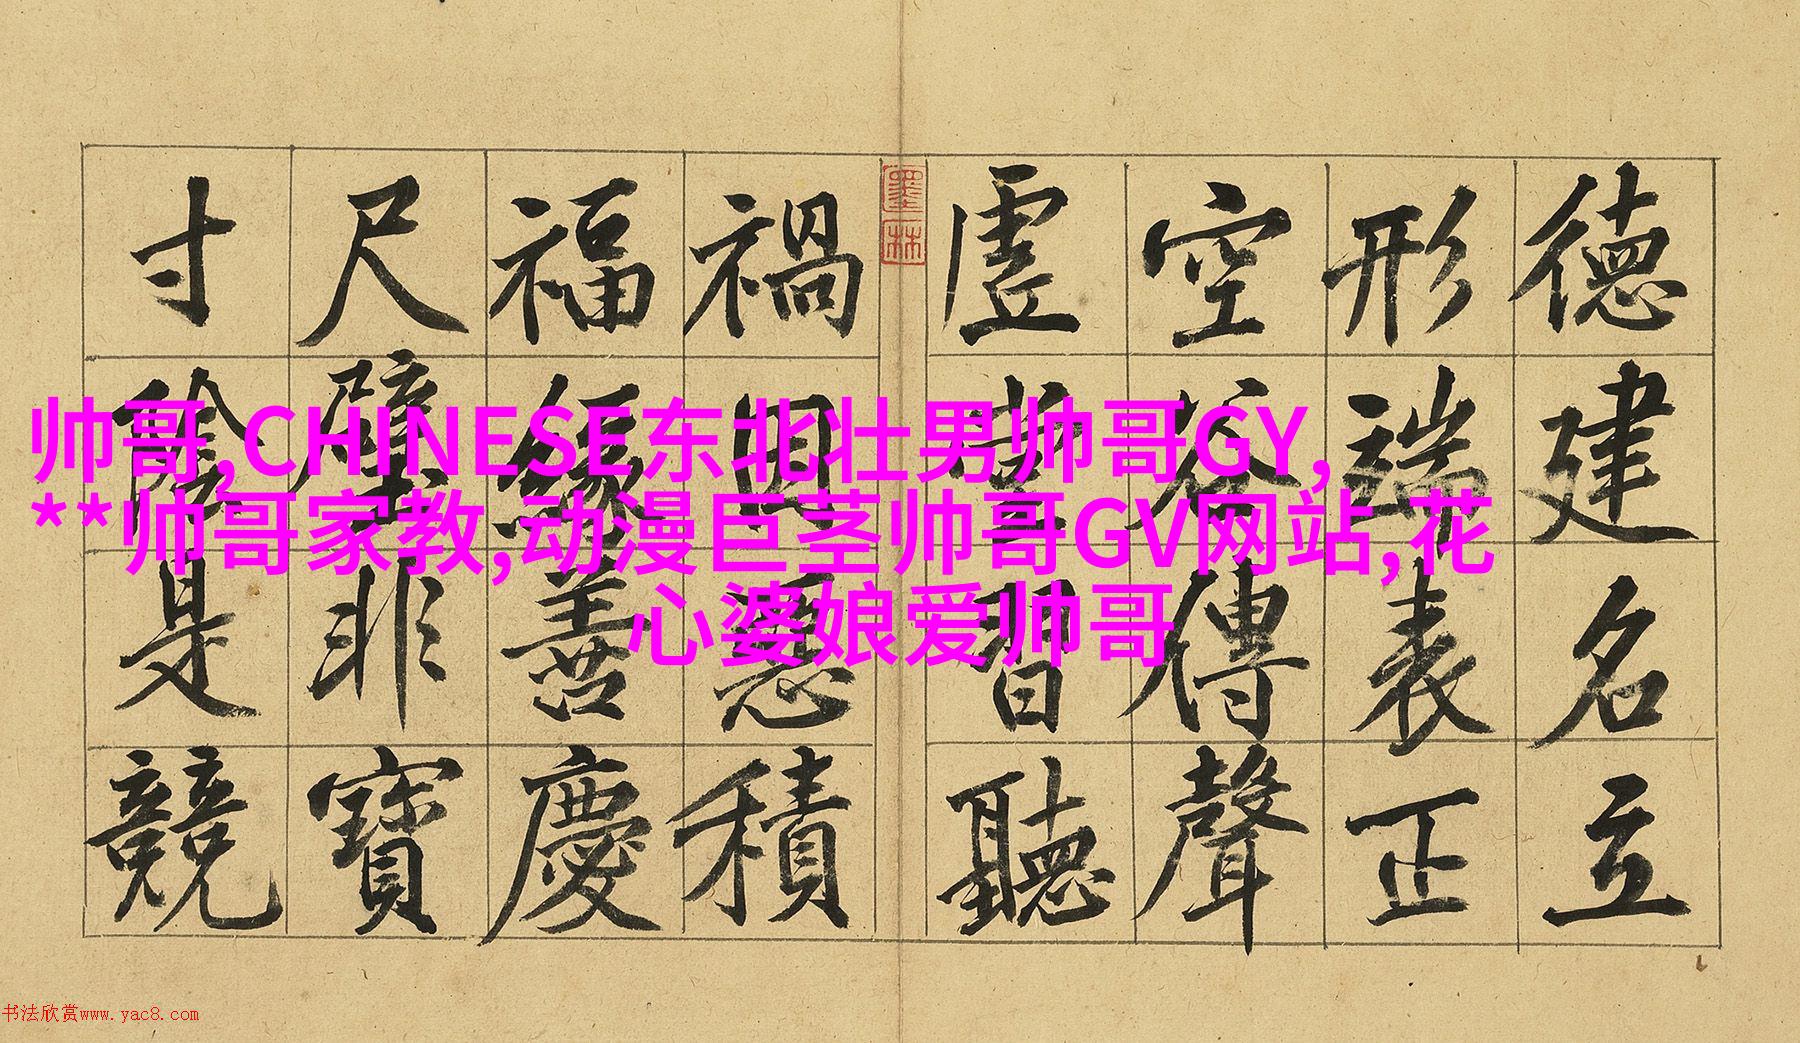 德建名立
形端表正
空谷傳聲
虛堂習聽
禍因惡積
福緣善慶
尺璧非寶
寸陰是競
墨林
帅哥,CHINESE东北壮男帅哥GY,
**帅哥家教,动漫巨茎帅哥GV网站,花
心婆娘爱帅哥
书法欣赏www.yac8.com